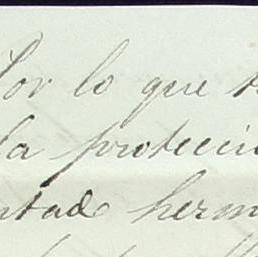 Por lo que
la protecci
ntade herm